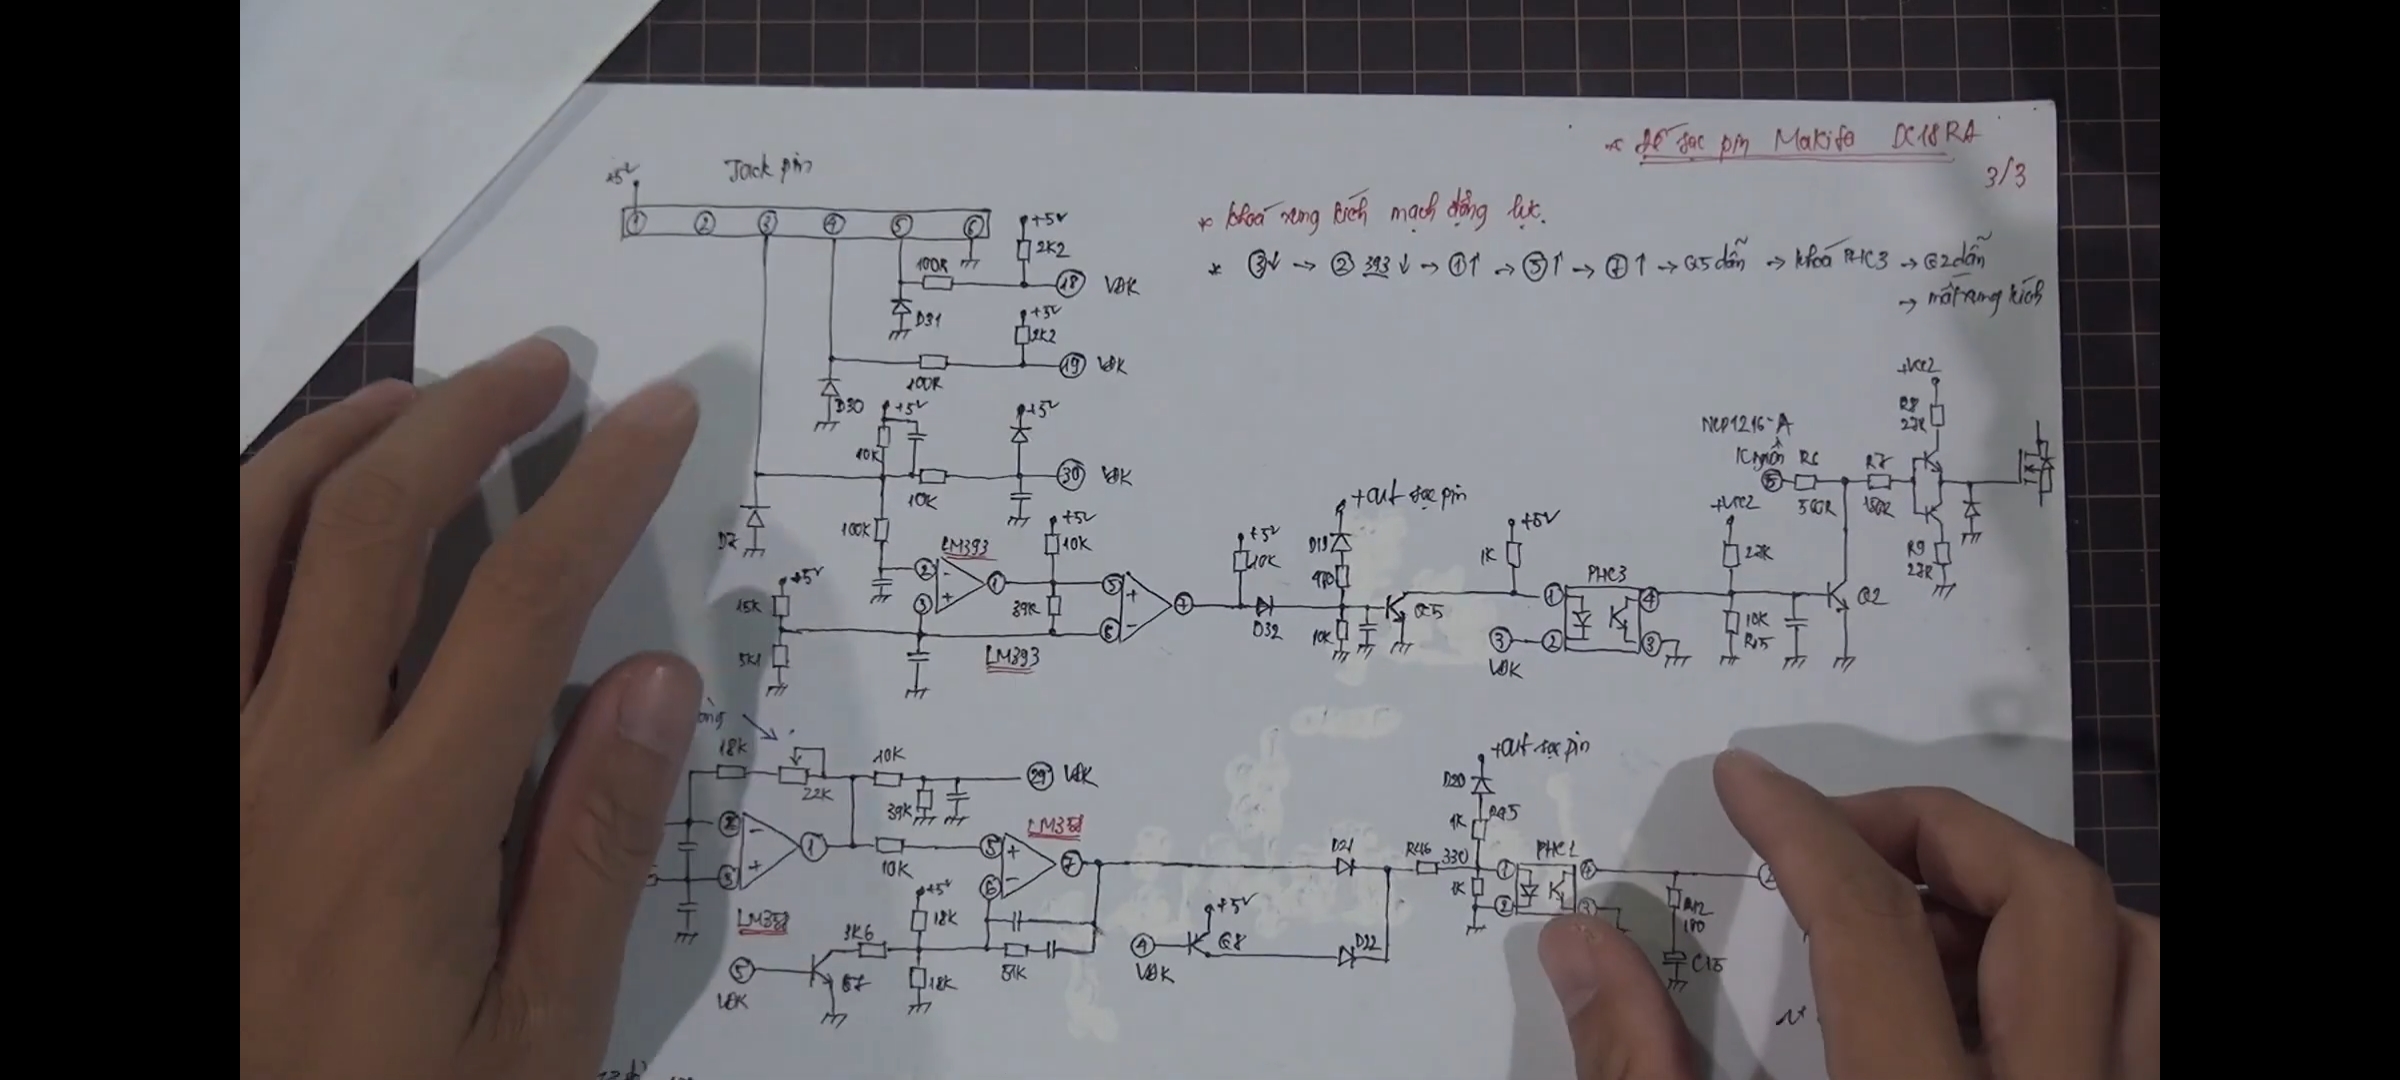 * Đế sạc pin Makita DC18RA
3/3
Jack pin
+5V
① ② ③ ④ ⑤ ⑥
* khoá xung kích mạch động lực.
* ③↓ → ② 393 ↓ → ①↑ → ⑤↑ → ⑦↑ → Q5 dẫn → khoá PHC3 → Q2 dẫn
→ mất xung kích
+5V
2K2
100R
⑱ VĐK
D31
+5V
2K2
100R
⑲ VĐK
D30
+5V
10K
10K
+5V
㉚ VĐK
D7
100K
LM393
② - ③ + ①
+5V
10K
39K
⑤ + ⑥ - ⑦
LM393
+5V
15K
5K1
+5V
10K
D32
+out sạc pin
D19
470
10K
Q5
+5V
1K
PHC3
① ② ③ ④
③
VĐK
+Vcc2
27K
10K
R15
Q2
NCP1216-A
IC nguồn
⑤ R6
560R
R7
+Vcc2
R8
27R
R9
27R
18K
22K
10K
39K
㉙ VĐK
② - ③ + ①
10K
LM358
⑤ + ⑥ - ⑦
LM358
+5V
18K
3K6
18K
51K
⑤
VĐK
Q7
④
VĐK
+5V
Q8
D21
D22
R46
330
+out sạc pin
D20
1K
R45
1K
PHC1
① ② ③ ④
R12
180
C15